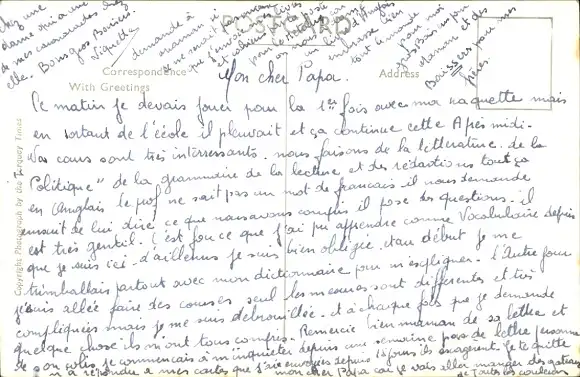 POST CARD
Correspondence
Address
With Greetings
Copyright Photograph by the Torquay Times
Mon cher Papa.
Ce matin je devais jouer pour la 1ère fois avec ma raquette mais
en sortant de l'école il pleuvait et ça continue cette Après midi.
Nos cours sont très interressants. nous faisons de la litterature. de la
Politique" de la grammaire de la lecture et des rédactions tout ça
en Anglais le prof ne sait pas un mot de français il nous demande
ensuite de lui dire ce que nous avons compris il pose des questions. il
est très gentil. C'est fou ce que j'ai pu apprendre comme Vocabulaire depuis
que je suis ici. d'ailleurs je suis bien obligée. Au début je me
trimballais partout avec mon dictionnaire pour m'expliquer. L'Autre jour
j'suis allée faire des courses seul les mesures sont differentes et très
compliquées mais je me suis debrouillée. et à chaque fois que je demande
quelque chose ils m'ont tous compris. Remercie bien maman de sa lettre et
de son colis, je commencais à m'inquieter depuis une semaine pas de lettre personne
n'a répondu à mes cartes que j'ai envoyées depuis 15 jours ils exagerent. Je te quitte
mon cher Papa car je vais aller manger des gateaux
de toutes les couleurs
chez une
dame qui a une
de mes camarades chez
elle. Bons gros Bonices
demande à
maman si
pour mes
Baisers
frères.
embrasse bien
tout le monde
pour moi